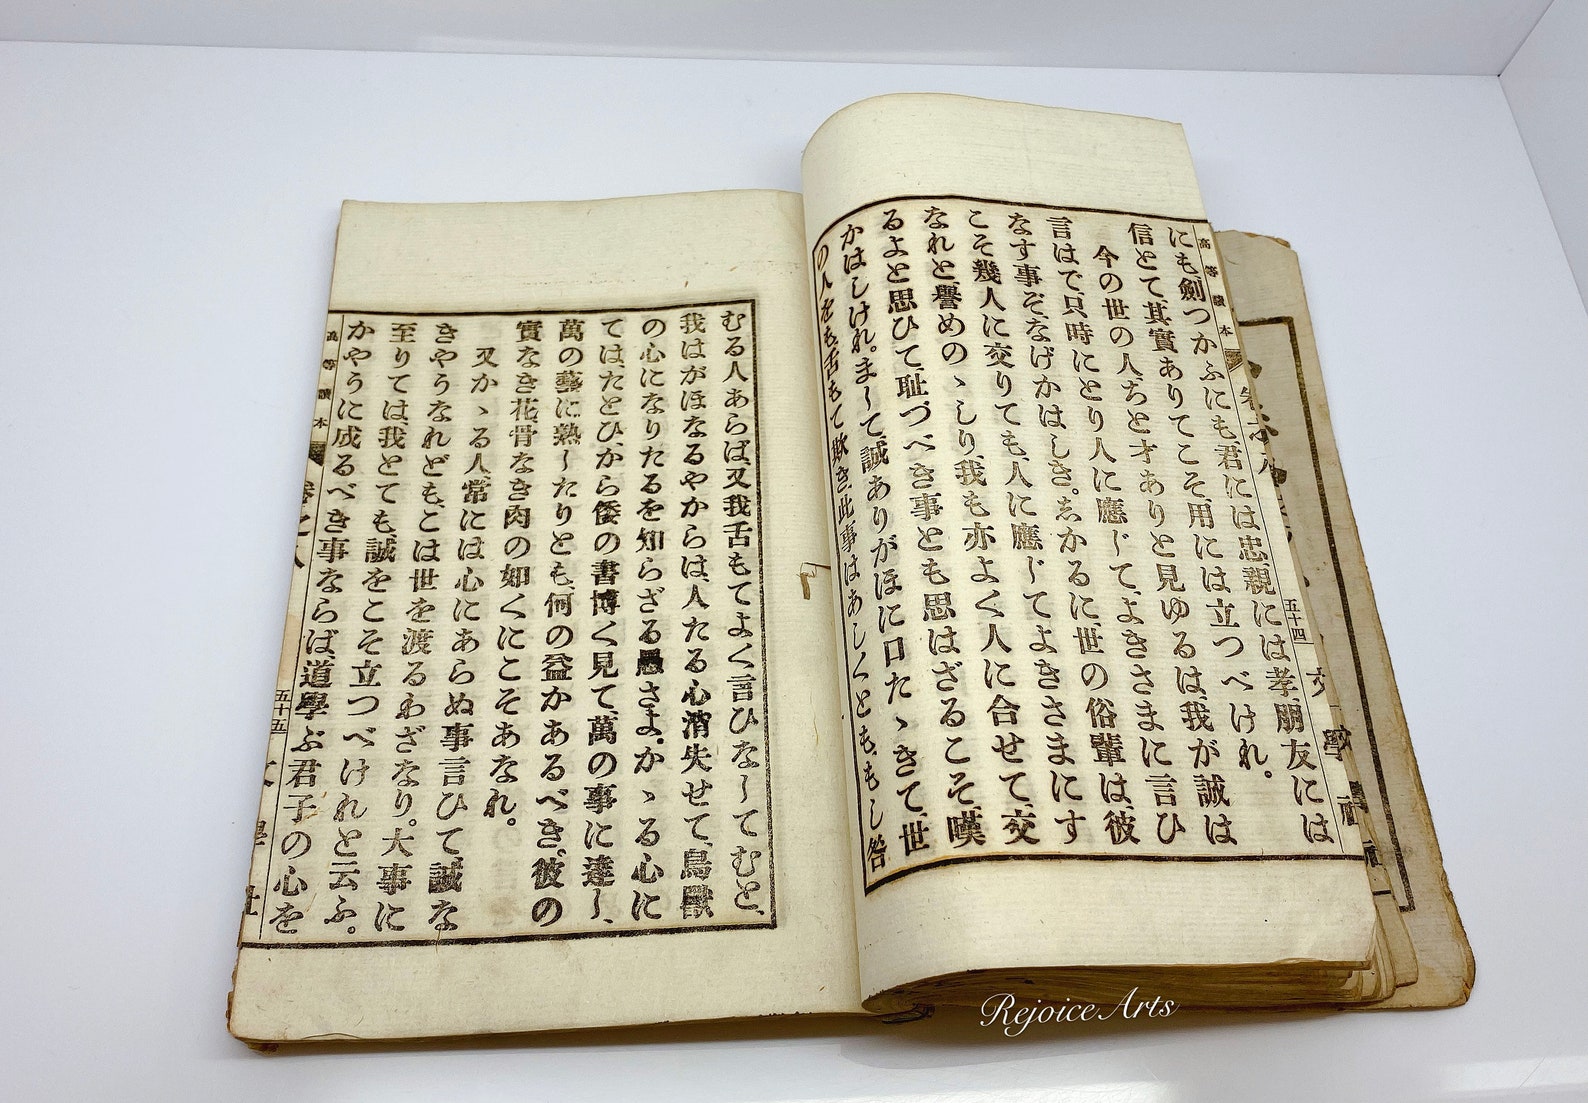 高等讀本
五十四
にも、劍つかふにも、君には忠、親には孝、朋友には
信とて、其實ありてこそ用には立つべけれ。
今の世の人ぢと才ありと見ゆるは、我が誠は
言はで、只時にとり人に應じて、よきさまに言ひ
なす事ぞなげかはしき。志かるに、世の俗輩は、彼
こそ幾人に交りても、人に應じてよきさまにす
なれと、譽めのゝしり、我も亦よく人に合せて、交
るよと思ひて、耻づべき事とも思はざるこそ、嘆
かはしけれ。まして、誠ありがほに口たゝきて、世
の人をも、舌もて欺き、此事はあしくとも、もし咎
むる人あらば、又我舌もてよく言ひなしてむと、
我はがほなるやからは、人たる心消失せて、鳥獸
の心になりたるを知らざる愚さよ。かゝる心に
ては、たとひ、から倭の書博く見て、萬の事に達し、
萬の藝に熟したりとも、何の益かあるべき。彼の
實なき花、骨なき肉の如くにこそあなれ。
又かゝる人、常には心にあらぬ事言ひて誠な
きやうなれども、こは世を渡るわざなり。大事に
至りては、我とても、誠をこそ立つべけれと云ふ。
かやうに成るべき事ならば、道學ぶ君子の心を
高等讀本
卷之八
五十五
文學社
Rejoice Arts